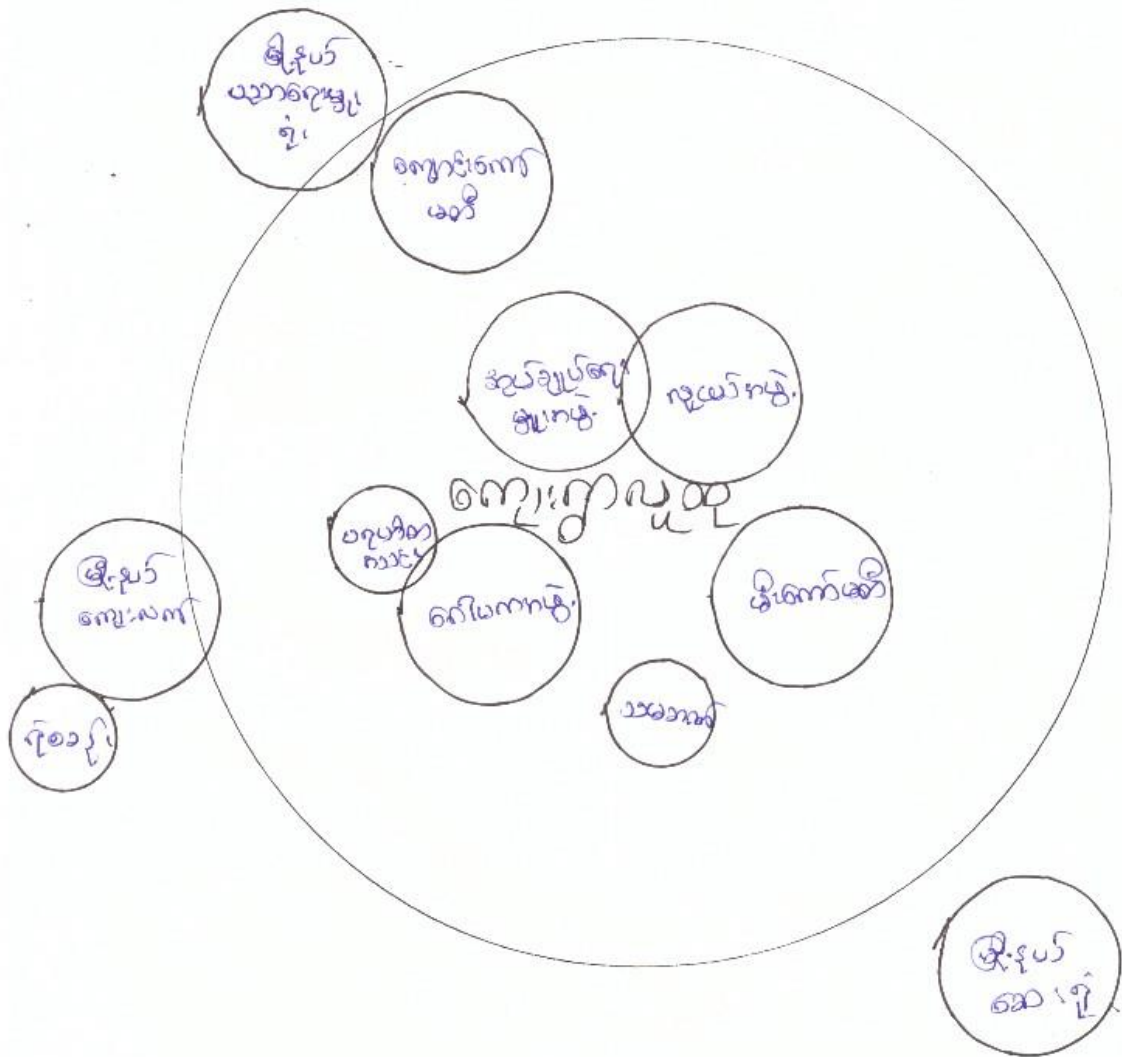 မြို့နယ်
ပညာရေးမှူး
ရုံး
ကျောင်းကော်
မတီ
အုပ်ချုပ်ရေး
မှူးအဖွဲ့
လူငယ်အဖွဲ့
ကျေးရွာလူထု
ပရဟိတ
အသင်း
ဂေါပကအဖွဲ့
မီးကော်မတီ
မြို့နယ်
ကျေးလက်
ရဲစခန်း
သမဘဏ်
မြို့နယ်
ဆေးရုံ